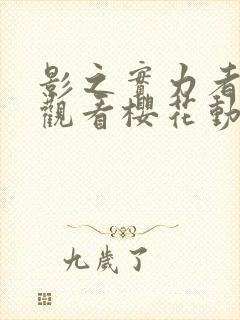 影之實力者
觀看櫻花動
九歲了